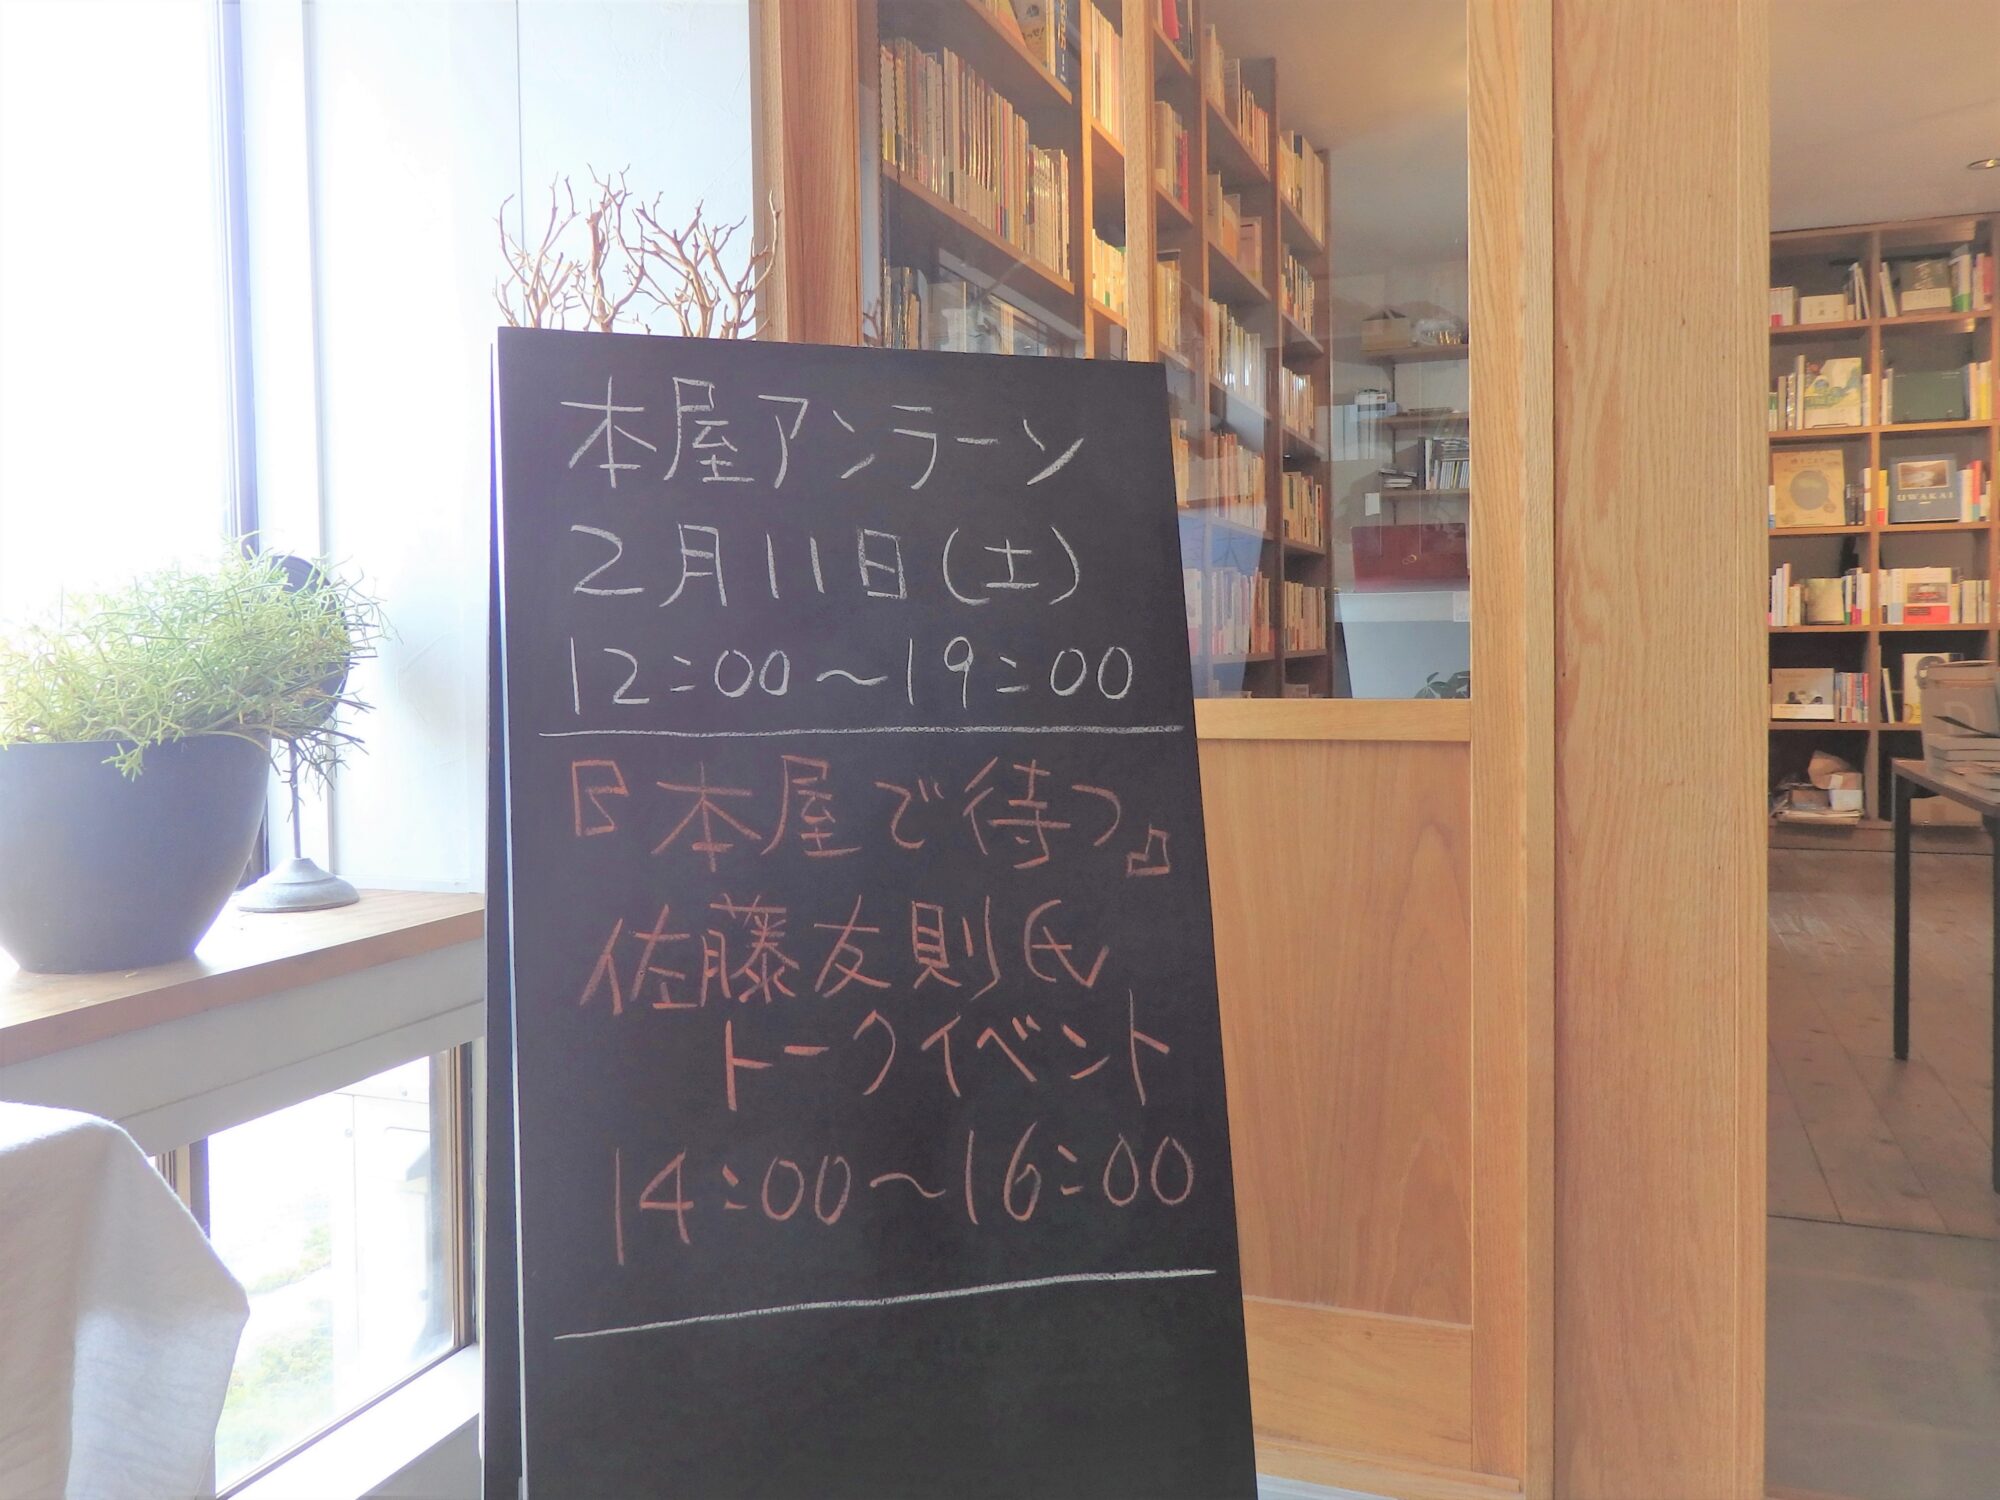 本屋アンラーン
2月11日(土)
12:00〜19:00
『本屋で待つ』
佐藤友則氏
トークイベント
14:00〜16:00
UWAKAI